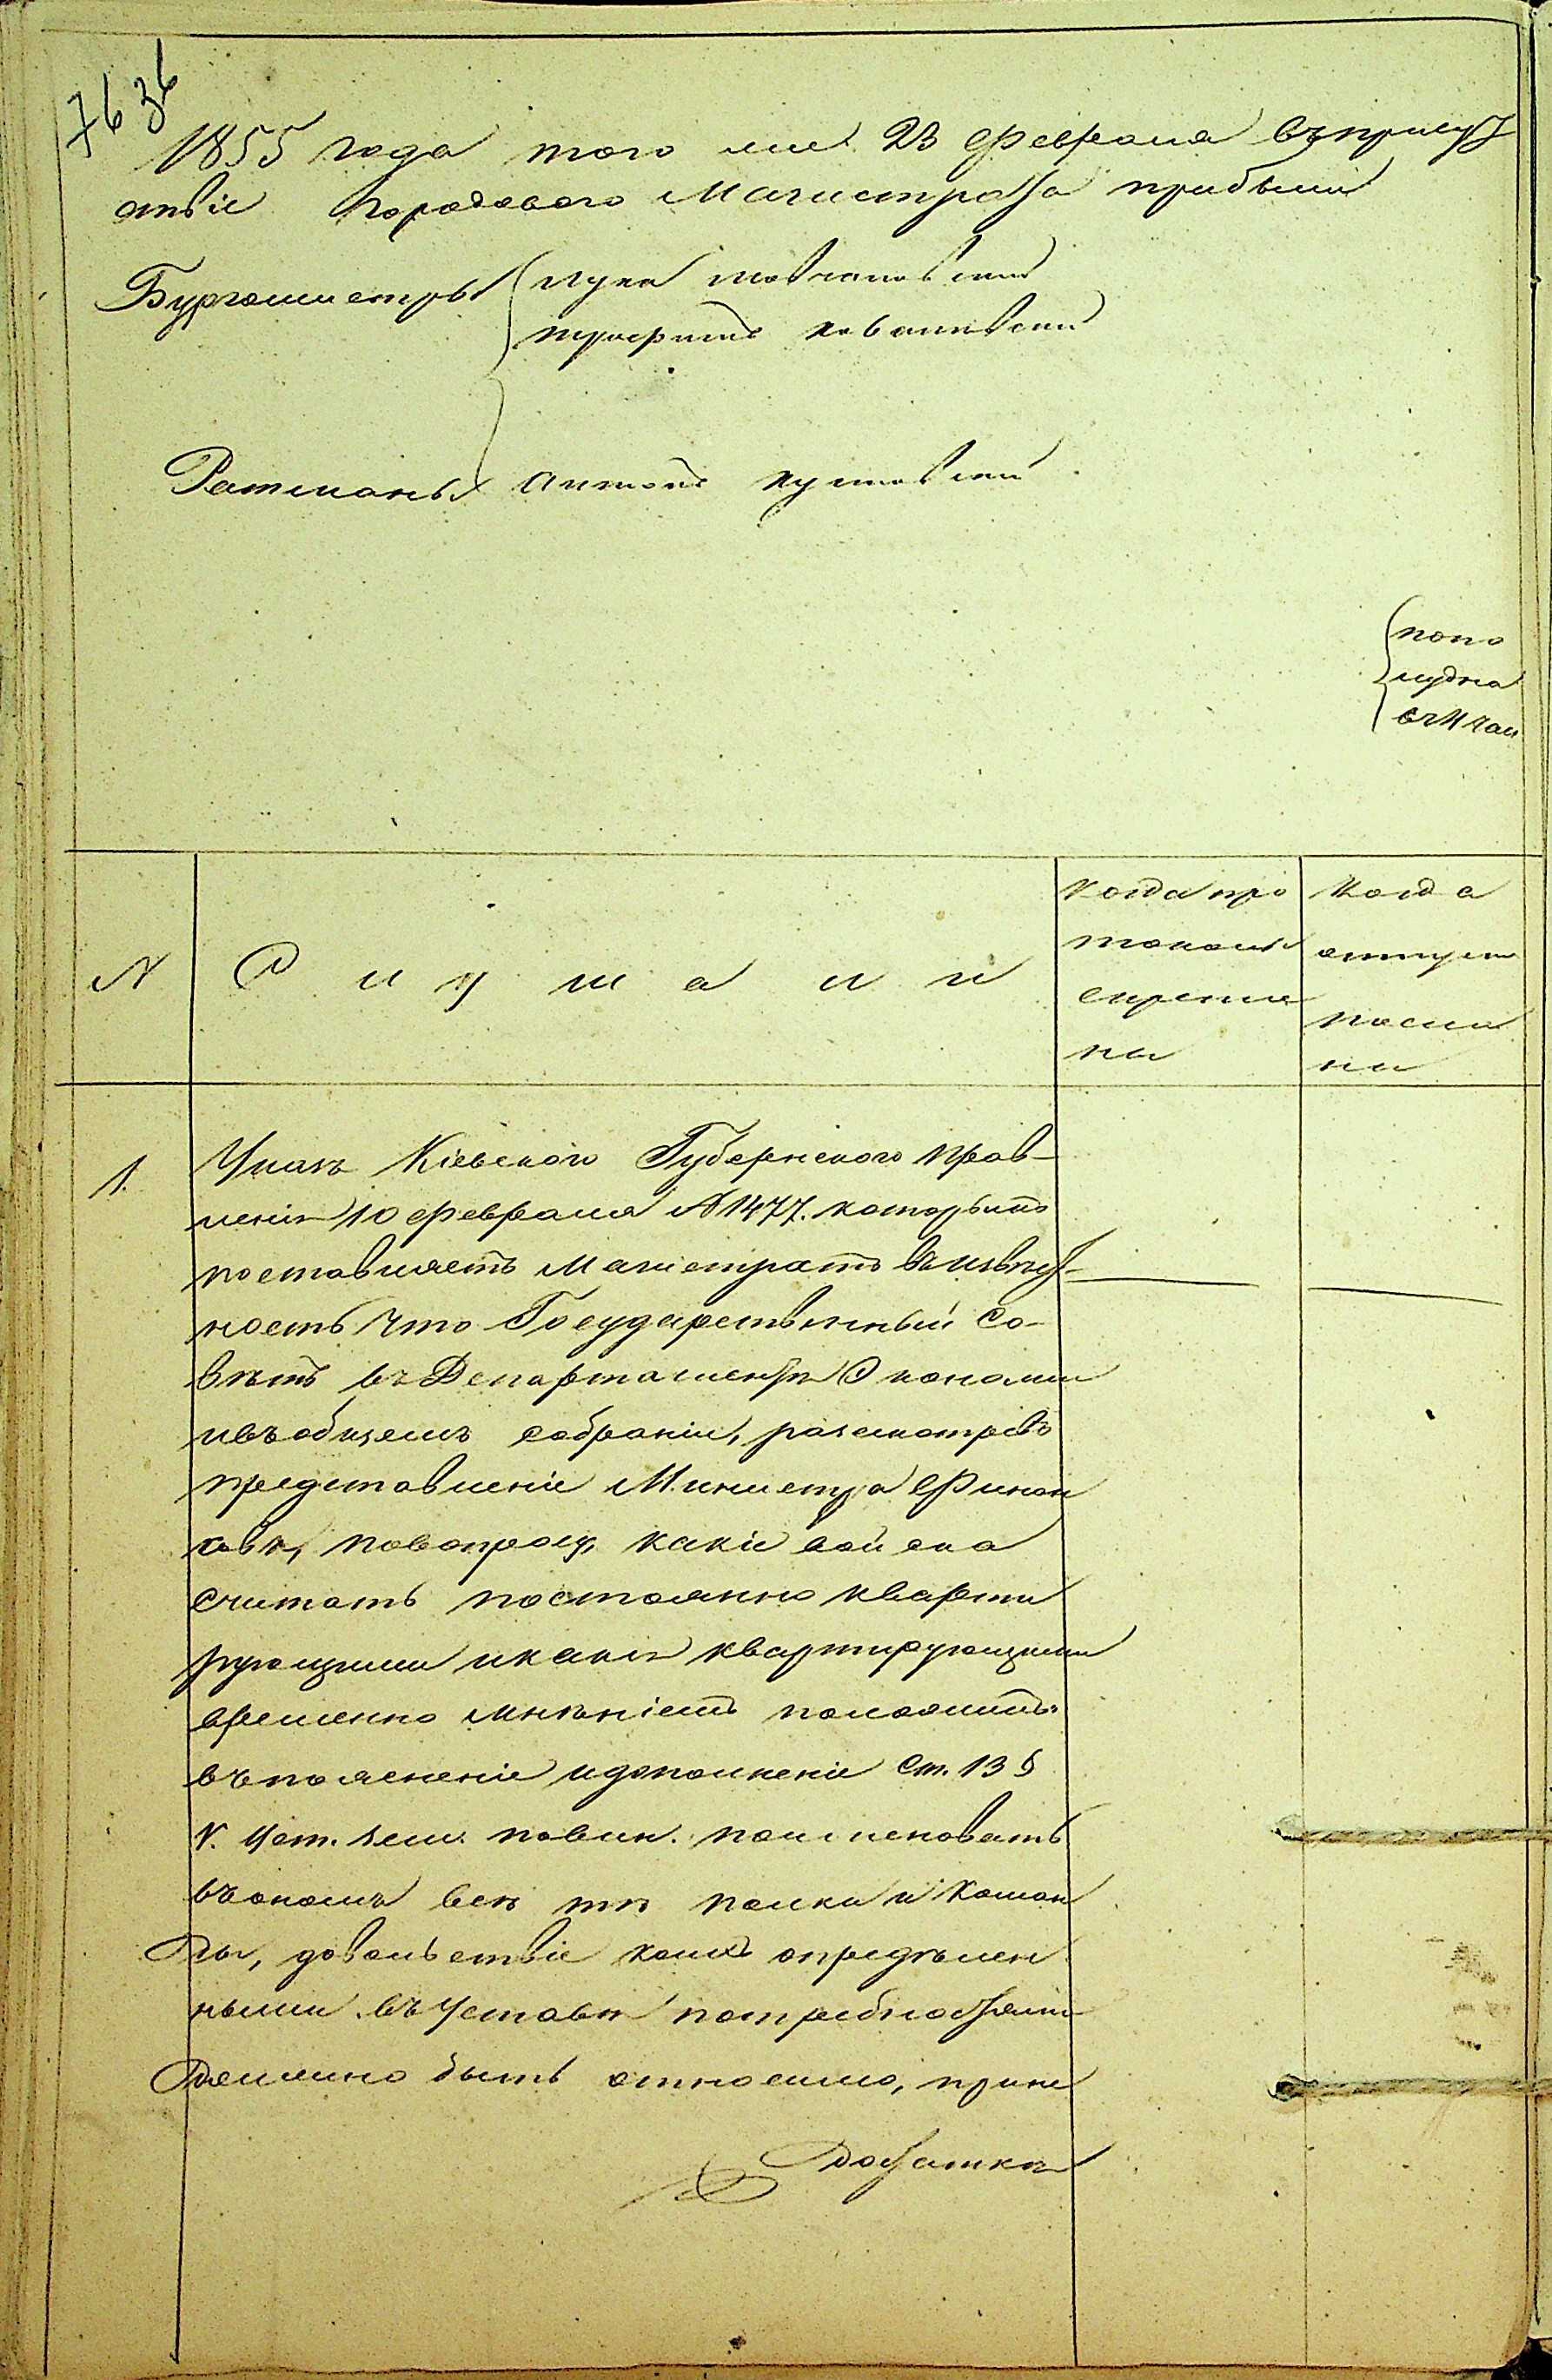 76 36
1855 года того же 23 Февраля въ присут
ствіе Городового Магистрата прибыли
Бургомистры Лука
Трофимъ
Ратманы Антонъ
попо
лудна
въ 11 час
№
Слушали
когда про
токолы
скрепле
ны
когда
отпуски
посла
ны
1.
Указъ Кіевского Губернского прав-
ленія 10 февраля № 1477. которымъ
поставляетъ Магистратъ въ извест-
ность что Государственный Со-
ветъ въ Департаменте Экономии
и въ общемъ собраніи, разсмотревъ
представленіе Министра Финан
совъ, по вопросу, какіе войска
считать постоянно кварти
рующими и какія квартирующими
временно мненіемъ положилъ:
въ пояснение и дополненіе Ст. 13
V. Уст. зем. повин. поименовать
въ ономъ все те полки и коман
ды, довольствіе коихъ определен
ными въ Уставе потребностями
должно быть относимо,
Достатки